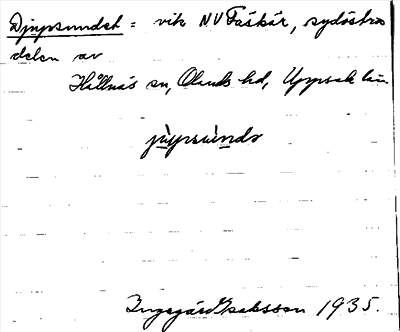 Djupsundet = vik NV Fäskär, sydöstra
delen av
Hållnäs sn, Olands hd, Uppsala län
jùpsùndə
Ingegärd Isaksson 1935.